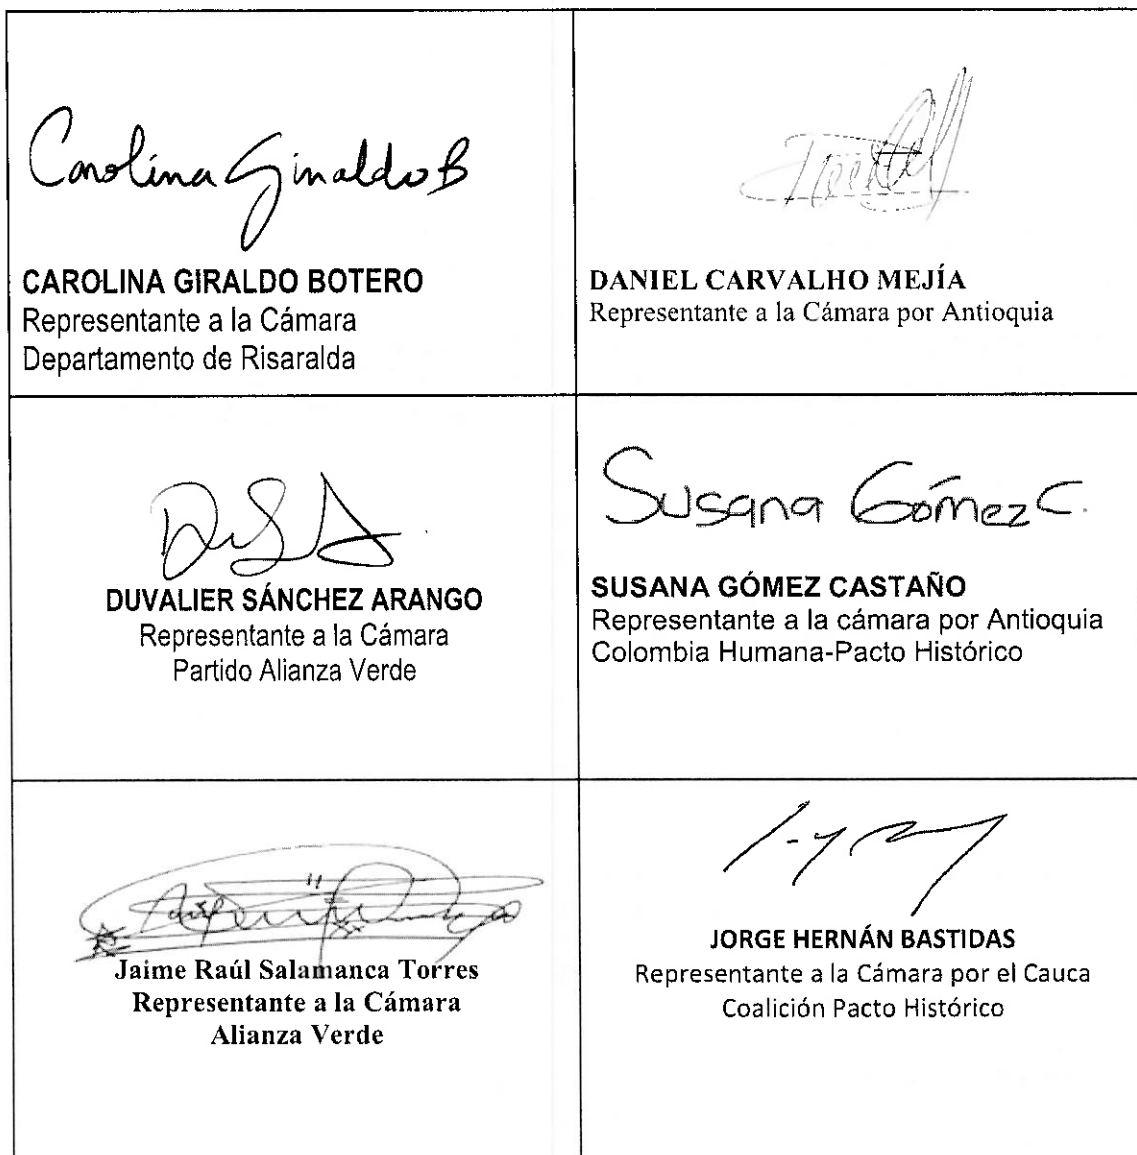 Carolina Giraldo B
CAROLINA GIRALDO BOTERO
Representante a la Cámara
Departamento de Risaralda
DANIEL CARVALHO MEJÍA
Representante a la Cámara por Antioquia
DUVALIER SÁNCHEZ ARANGO
Representante a la Cámara
Partido Alianza Verde
Susana Gómez C.
SUSANA GÓMEZ CASTAÑO
Representante a la cámara por Antioquia
Colombia Humana-Pacto Histórico
Jaime Raúl Salamanca Torres
Representante a la Cámara
Alianza Verde
JORGE HERNÁN BASTIDAS
Representante a la Cámara por el Cauca
Coalición Pacto Histórico